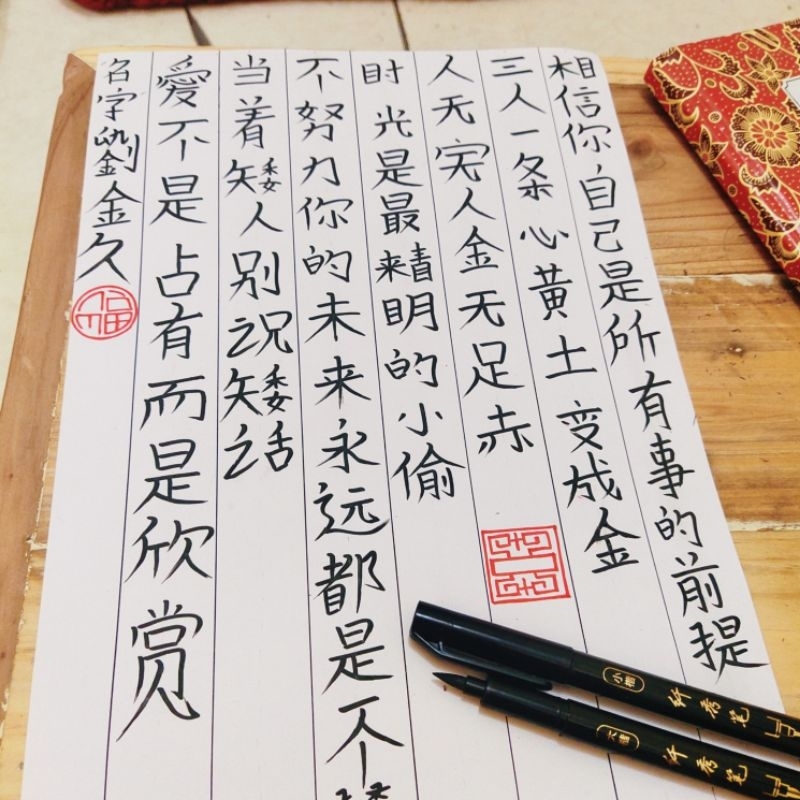 相信你自己是所有事的前提
三人一条心黄土变成金
人无完人金无足赤
时光是最精明的小偷
不努力你的未来永远都是个
当着矮人别说矮话
愛不是占有而是欣赏
名字劉金久
福
小楷 纤秀笔
大楷 纤秀笔